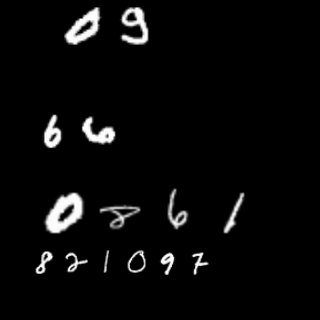 09
66
0861
821097